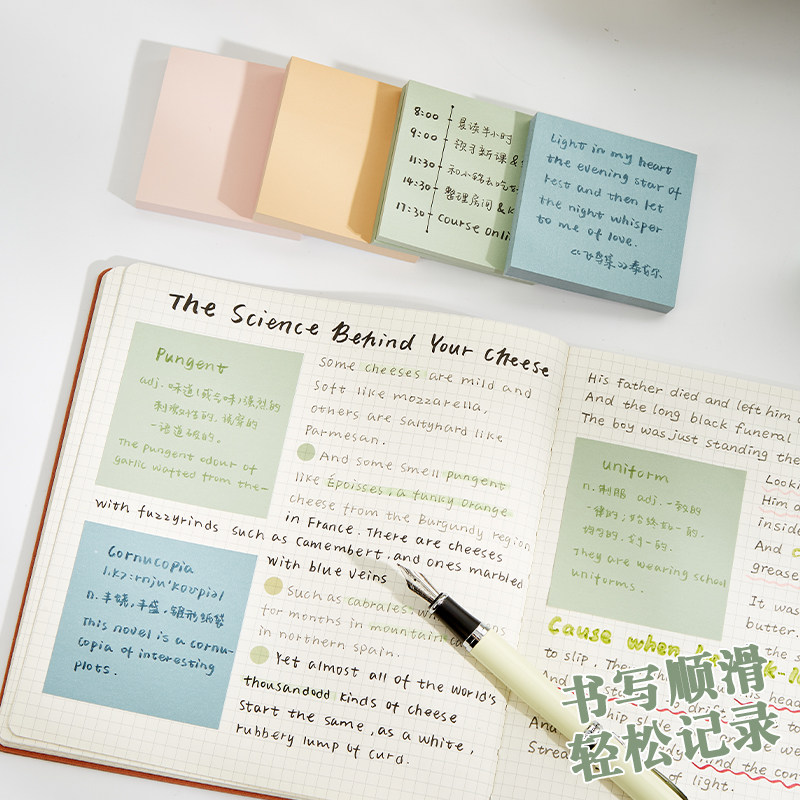 8:00
晨读半小时
9:00
预习新课 &
11:30
和小铭去吃
14:30
整理房间 &
17:30
course onli
Light in my heart
the evening star of
rest and then let
the night whisper
to me of love.
《飞鸟集》泰戈尔
The Science Behind Your Cheese
Pungent
adj. 味道(或气味)强烈的
刺激性的, 辛辣的
一语道破的.
The pungent odour of
garlic wafted from the-
some cheeses are mild and
soft like mozzarella,
others are saltynard like
Parmesan.
And some smell pungent
like Époisses, a funky orange
cheese from the Burgundy region
in France. There are cheeses
with fuzzyrinds such as Camembert, and ones marbled
with blue veins
Cornucopia
n. 丰饶, 丰盛, 锥形纸袋
This novel is a cornu-
copia of interesting
plots.
Such as cabrales, wh
for months in mountain ca
in northern spain.
Yet almost all of the world's
thousandodd kinds of cheese
start the same, as a white,
rubbery lump of curd.
His father died and left him
And the long black funeral
The boy was just standing the
uniform
n. 制服 adj. 一致的
律的; 始终如一的.
均匀的. 划一的.
They are wearing school
uniforms.
Looki
Him a
inside
And
grease
It was
butter.
the s
Cause when
to slip. The
And
head
And
ship
Strea
and the con
of light.
书写顺滑
轻松记录